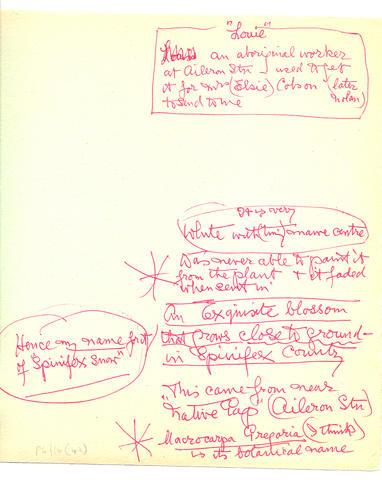 "Louie"
an aboriginal worker
at Aileron Stn used to get
it for Mrs (Elsie) Colson (later
Nolan)
to send to me
It is very
White with (tiny) mauve centre
Was never able to paint it
from the plant & it faded
when sent in
An Exquisite blossom
that grows close to ground
in Spinifex Country
Hence my name for it
of "Spinifex Snow"
"This came from near
Native Gap" (Aileron Stn)
Macrocarpa Gregaria (I think)
is its botanical name